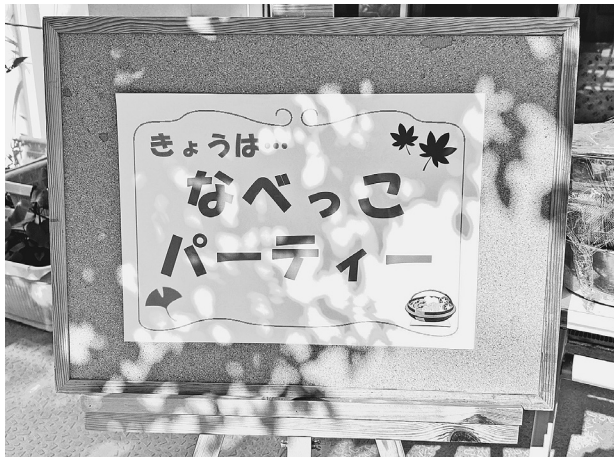 きょうは…
なべっこ
パーティー